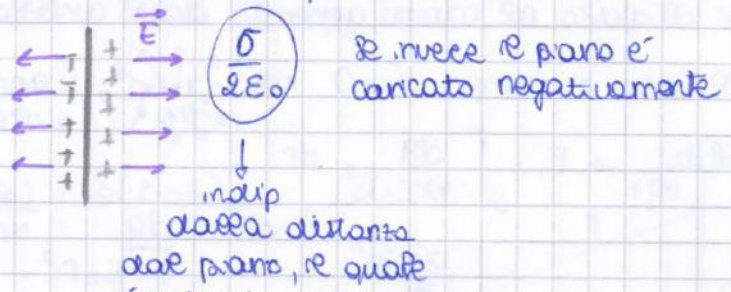 E
σ
2ε₀
se invece il piano è
caricato negativamente
indip
dalla distanza
dal piano, il quale